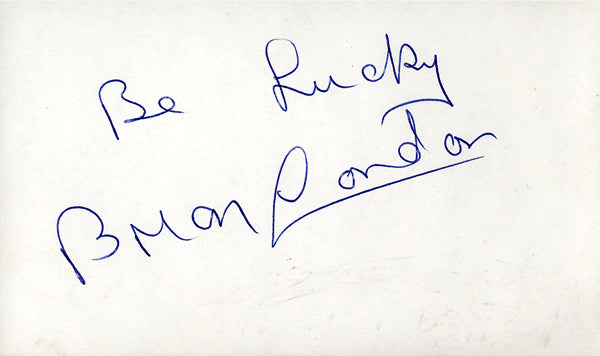 Be Lucky
Brian London